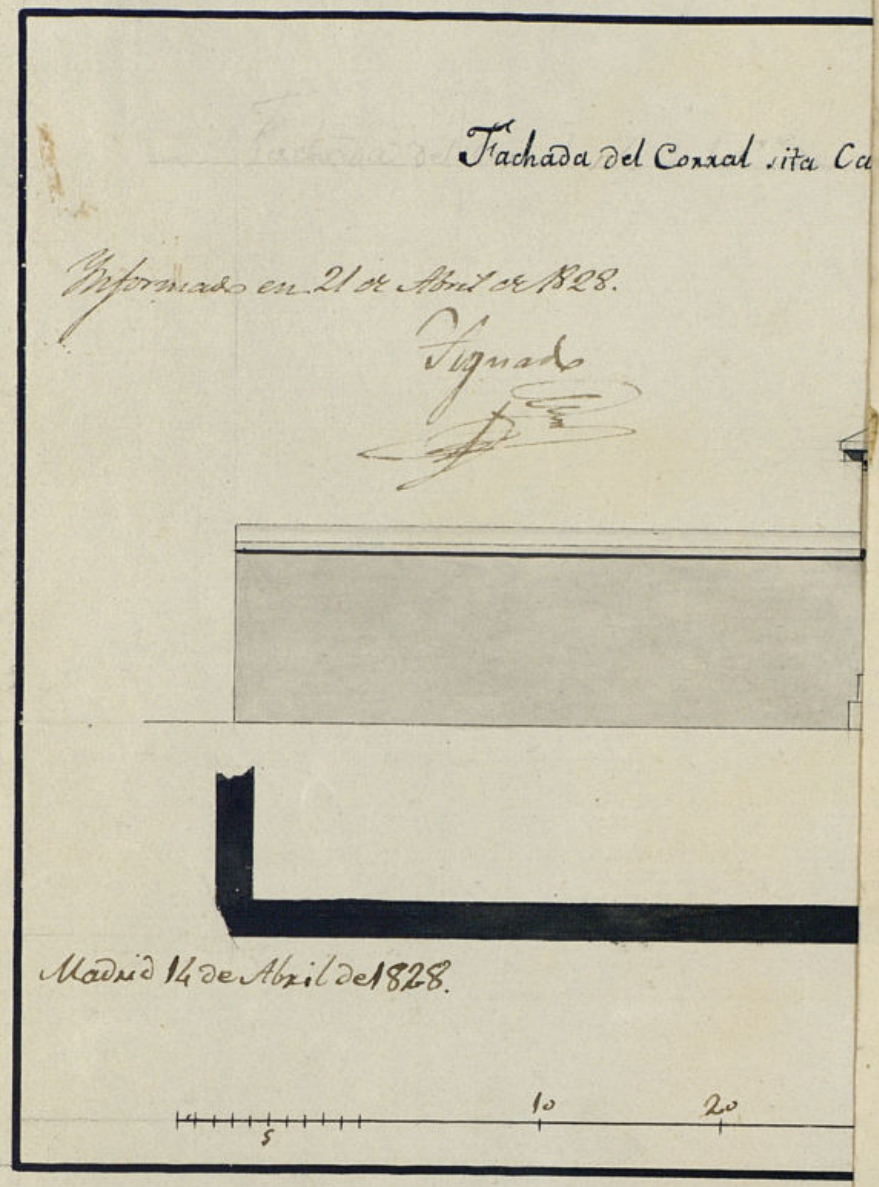 Fachada del Corral sita Ca
Informado en 21 de Abril de 1828.
Madrid 14 de Abril de 1828.
10 20
5